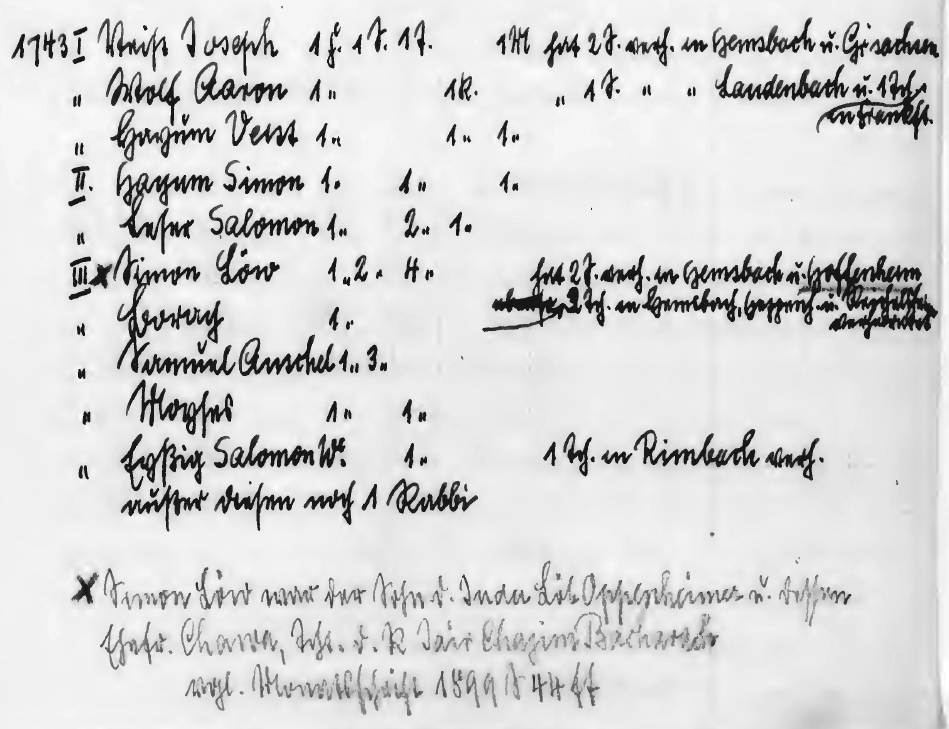 1743 I Veist Joseph 1 f. 1 S. 1 T. 1 M hat 2 S. verh. in Hemsbach u. Gr. sachsen
" Wolf Aaron 1 " 1 K. " 1 S. " " Laudenbach u. 1 Tch.
in Frankft.
" Hayum Veist 1 " 1 " 1 "
II. Hayum Simon 1 " 1 " 1 "
" Leser Salomon 1 " 2 " 1 "
III x Simon Löw 1 " 2 " 4 " hat 2 S. verh. in Hemsbach u. Hoffenheim
2 Tch. in Hemsbach, Heppenh. u.
verheiratet
" Borach 1 "
" Samuel Anschel 1 " 3 "
" Moyses 1 " 1 "
" Eyßig Salomon W. 1 " 1 Tch. in Rimbach verh.
außer diesen noch 1 Rabbi
x Simon Löw war der Sohn d. Juda Löb Oppenheimer u. dessen
Ehefr. Chawa, Tcht. d. R Jair Chajim Bacharach
vgl. Monatsschrift 1899 S 44 ff